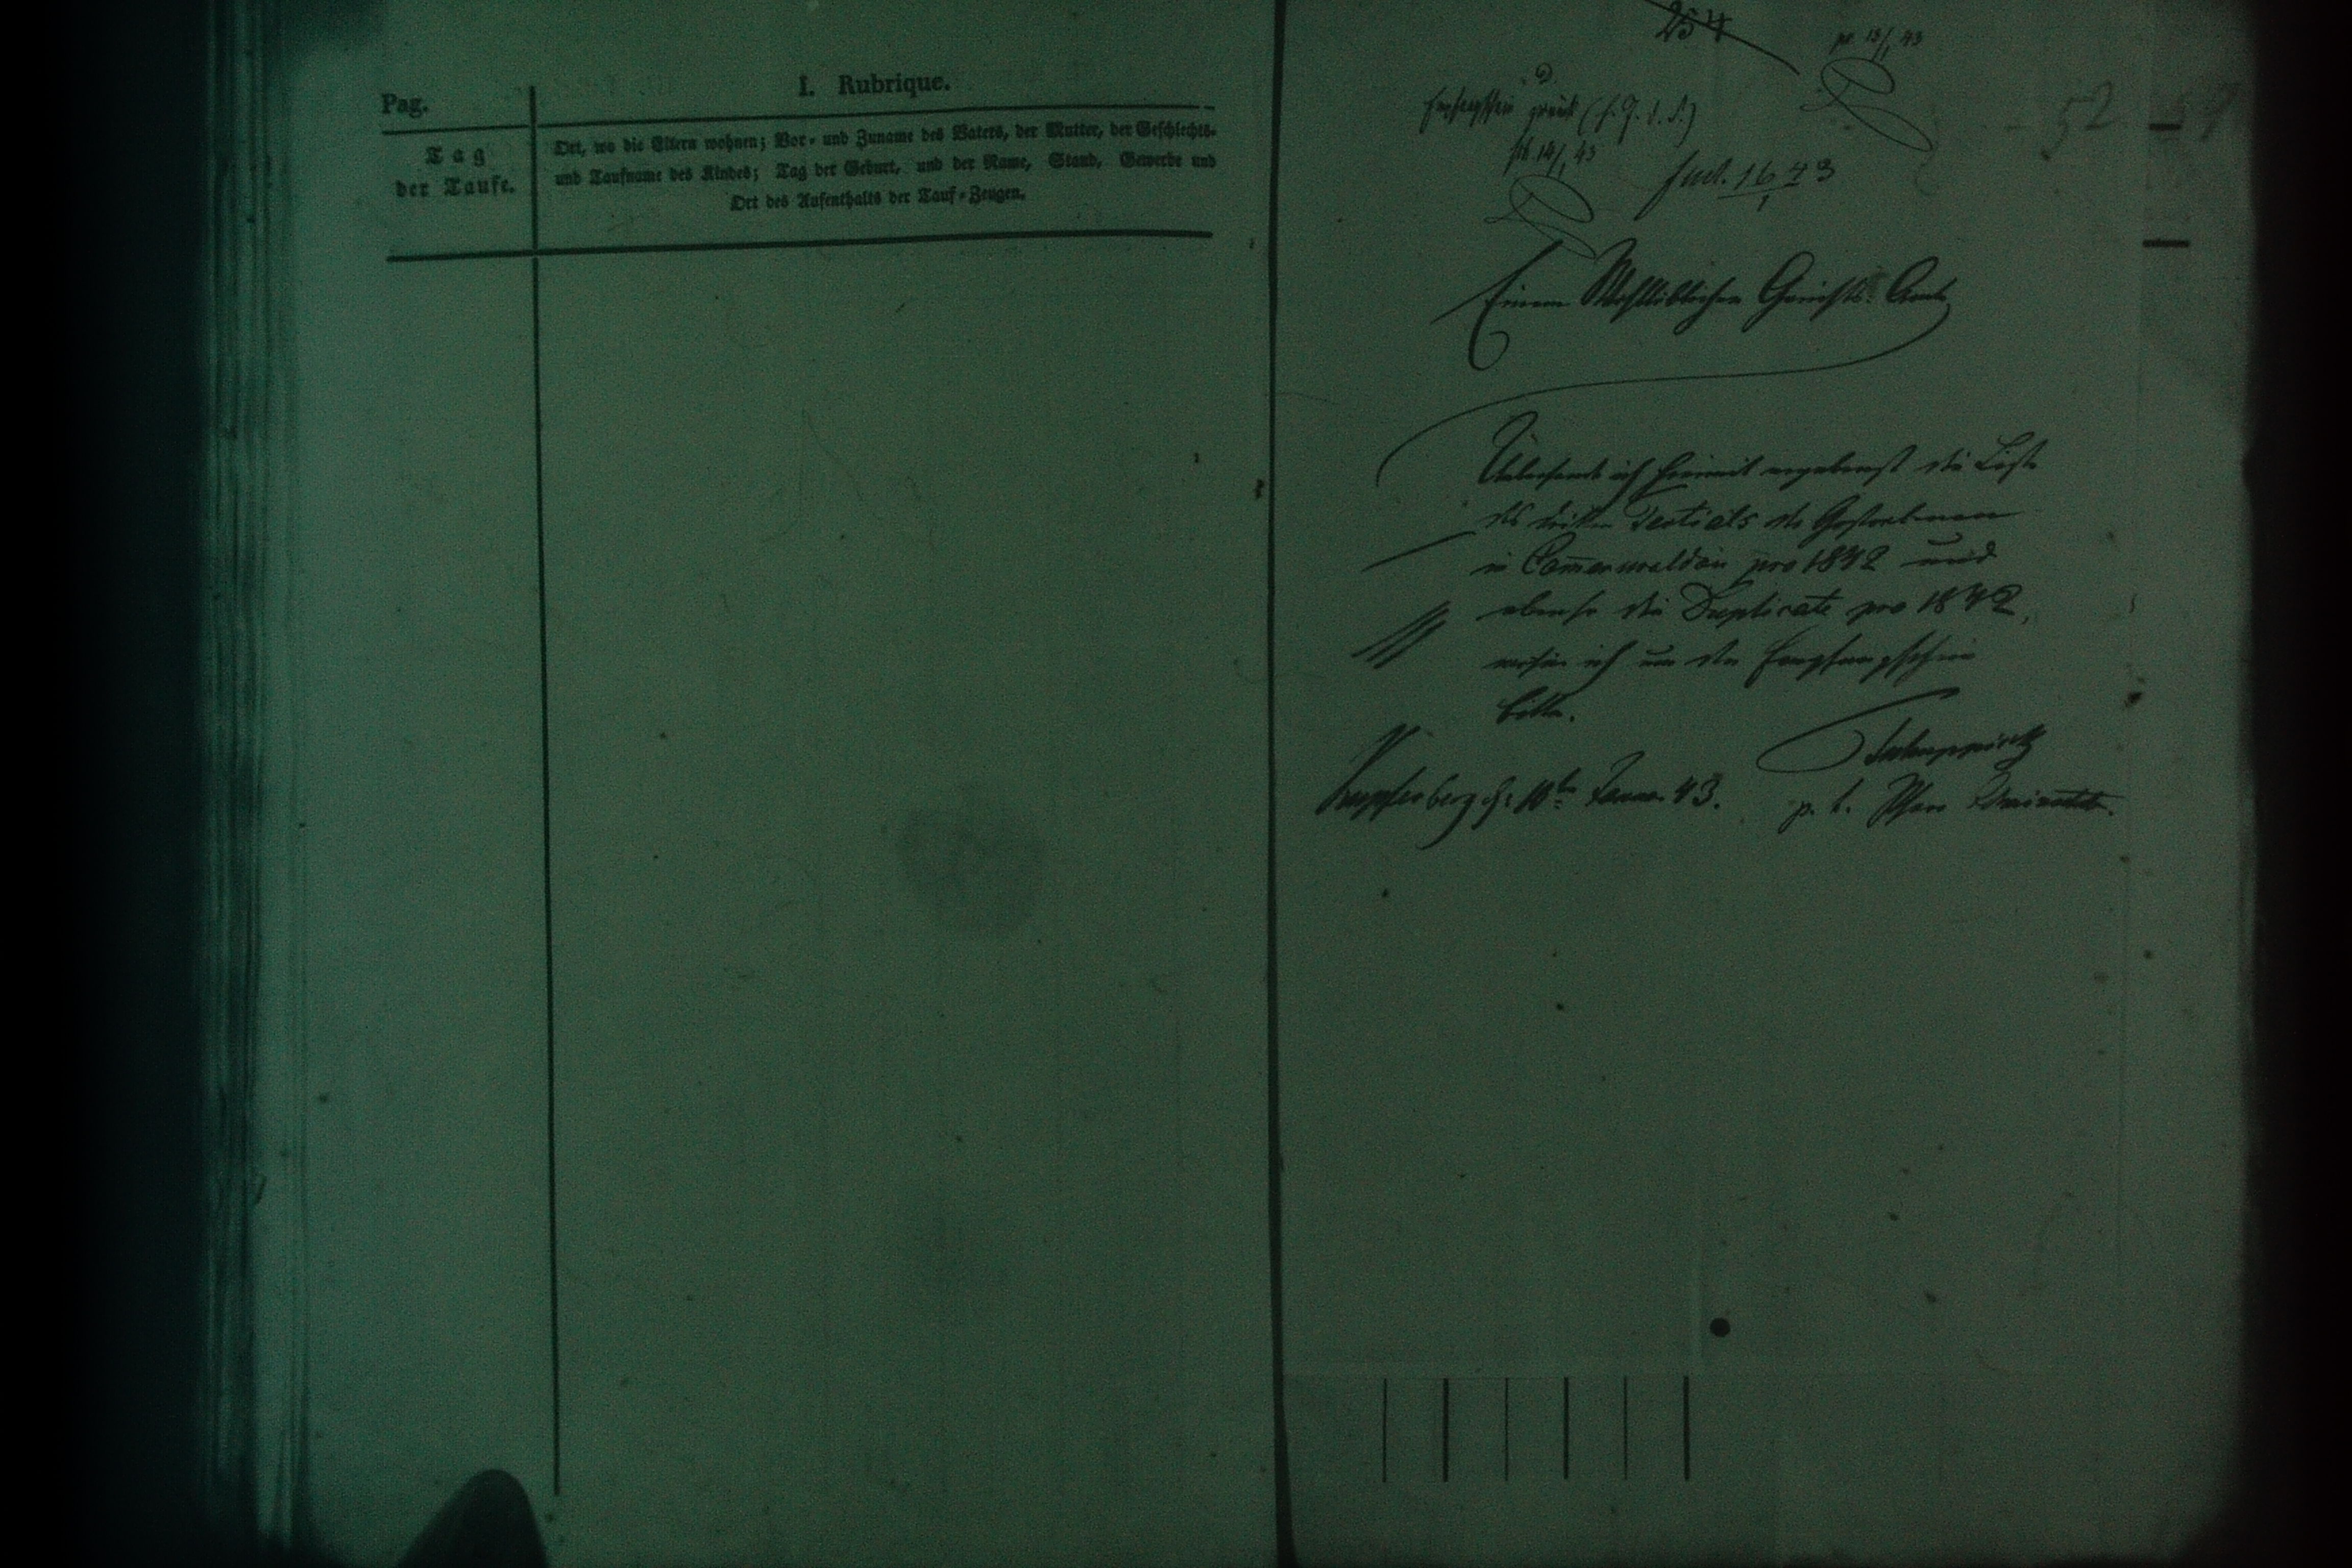 Pag.
I. Rubrique.
Tag
der Taufe.
Ort, wo die Eltern wohnen; Vor- und Zuname des Vaters, der Mutter, der Geschlechts-
und Taufname des Kindes; Tag der Geburt, und der Name, Stand, Gewerbe und
Ort des Aufenthalts der Tauf-Zeugen.
254
pr. 13/1 43
52
14/1 43
16/1 43
Einem Wohllöblichen Gerichts-Amte
Uebersende ich hiermit ergebenst die Liste
des dritten Tertials der Gestorbenen
in pro 1842 und
ebenso die Duplicate pro 1842,
wofür ich um den Empfangschein
bitte.
Kupferberg d: 10ten Januar 43.
p. t. Pfarr